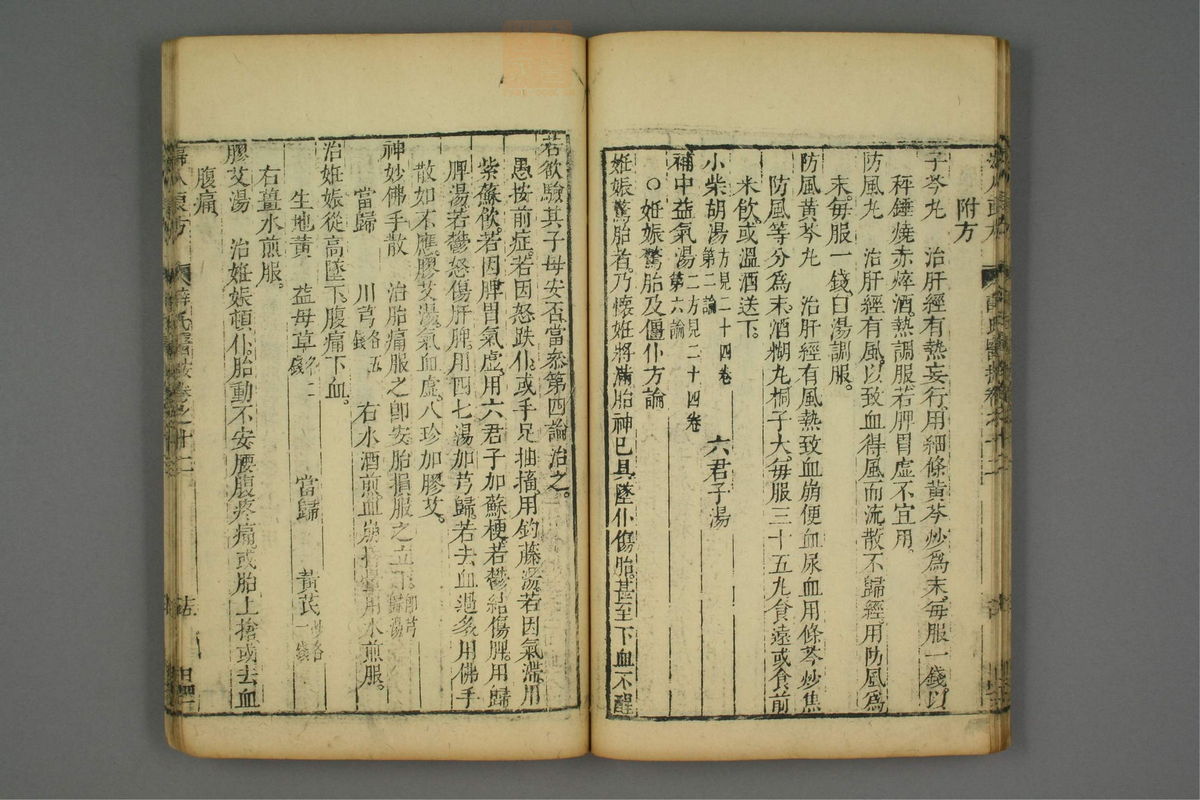 附方
子芩丸　治肝經有熱妄行用細條黃芩炒爲末每服一錢以
秤錘燒赤焠酒熱調服若脾胃虛不宜用
防風丸　治肝經有風以致血得風而流散不歸經用防風爲
末每服一錢白湯調服
防風黃芩丸　治肝經有風熱致血崩便血尿血用條芩炒焦
防風等分爲末酒糊丸桐子大每服三十五丸食遠或食前
米飲或溫酒送下
小柴胡湯方見二十四卷第二論　六君子湯
補中益氣湯二方見二十四卷第六論
○妊娠驚胎及僵仆方論
妊娠驚胎者乃懷妊將滿胎神已具墜仆傷胎甚至下血不醒
若欲驗其子母安否當叅第四論治之
愚按前症若因怒跌仆或手足抽搐用釣藤湯若因氣滯用
紫蘇飲若因脾胃氣虛用六君子加蘇梗若鬱結傷脾用歸
脾湯若鬱怒傷肝脾用四七湯加芎歸若去血過多用佛手
散如不應膠艾湯氣血虛八珍加膠艾
神妙佛手散　治胎痛服之卽安胎損服之立　卽芎歸湯
當歸　川芎各五錢　右水酒煎血崩　用水煎服
治妊娠從高墜下腹痛下血
生地黃　益母草各二錢　當歸　黃芪炒各一錢
右薑水煎服
膠艾湯　治妊娠頓仆胎動不安腰腹疼痛或胎上搶或去血
腹痛
婦人良方　薛氏醫按卷之十二